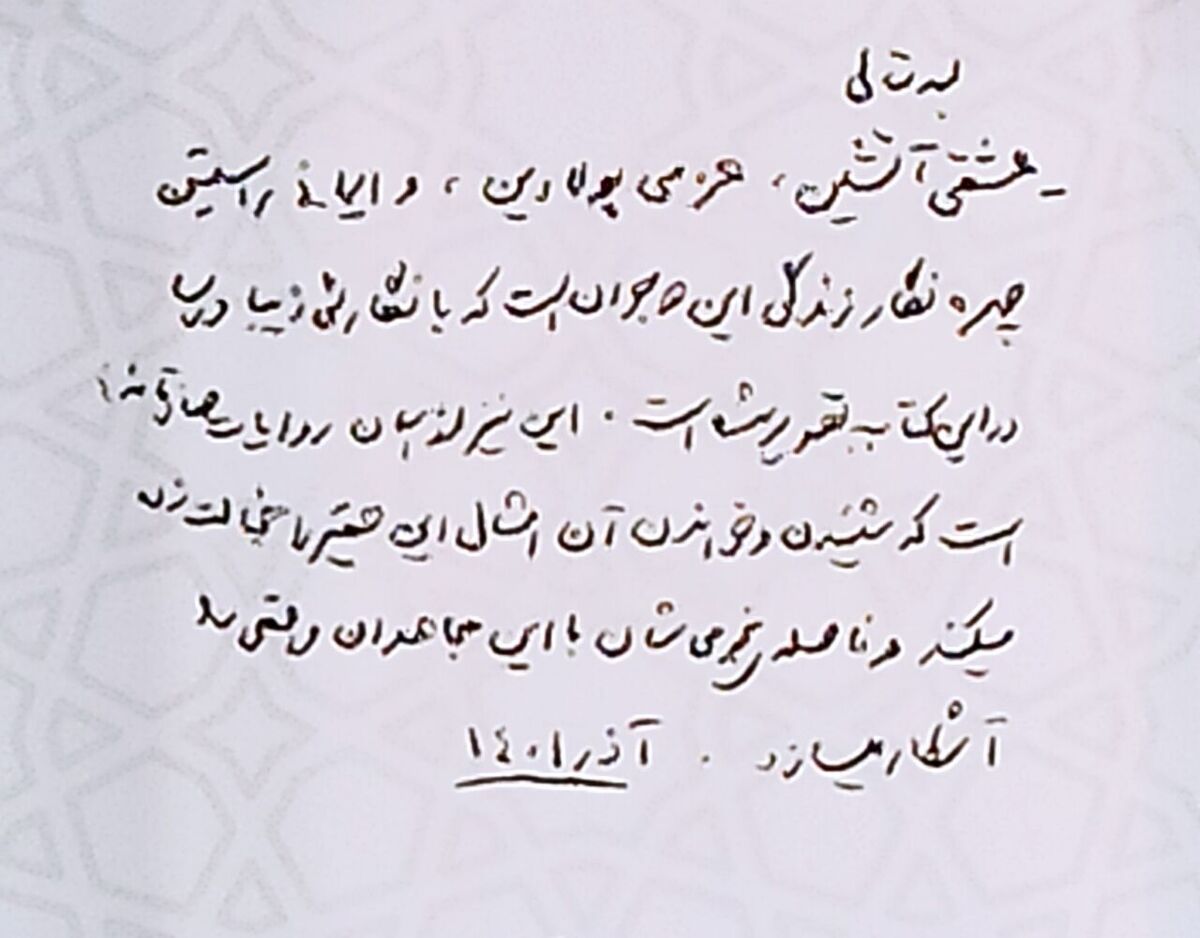 بسمه تعالی
ـ عشقی آتشین، عزمی پولادین، و ایمانی راستین
چهره نگار زندگی این مهاجران است که با نگارشی زیبا و رسا
در این کتاب به تصویر کشیده شده است. این نیز از جمله روایات صادقانه‌ای
است که شنیدن و خواندن آن امثال این حقیر را خجالت‌زده
میکند و فاصله نجومی شان با این مجاهدان واقعی را
آشکار میسازد. آذر ۱۴۰۱